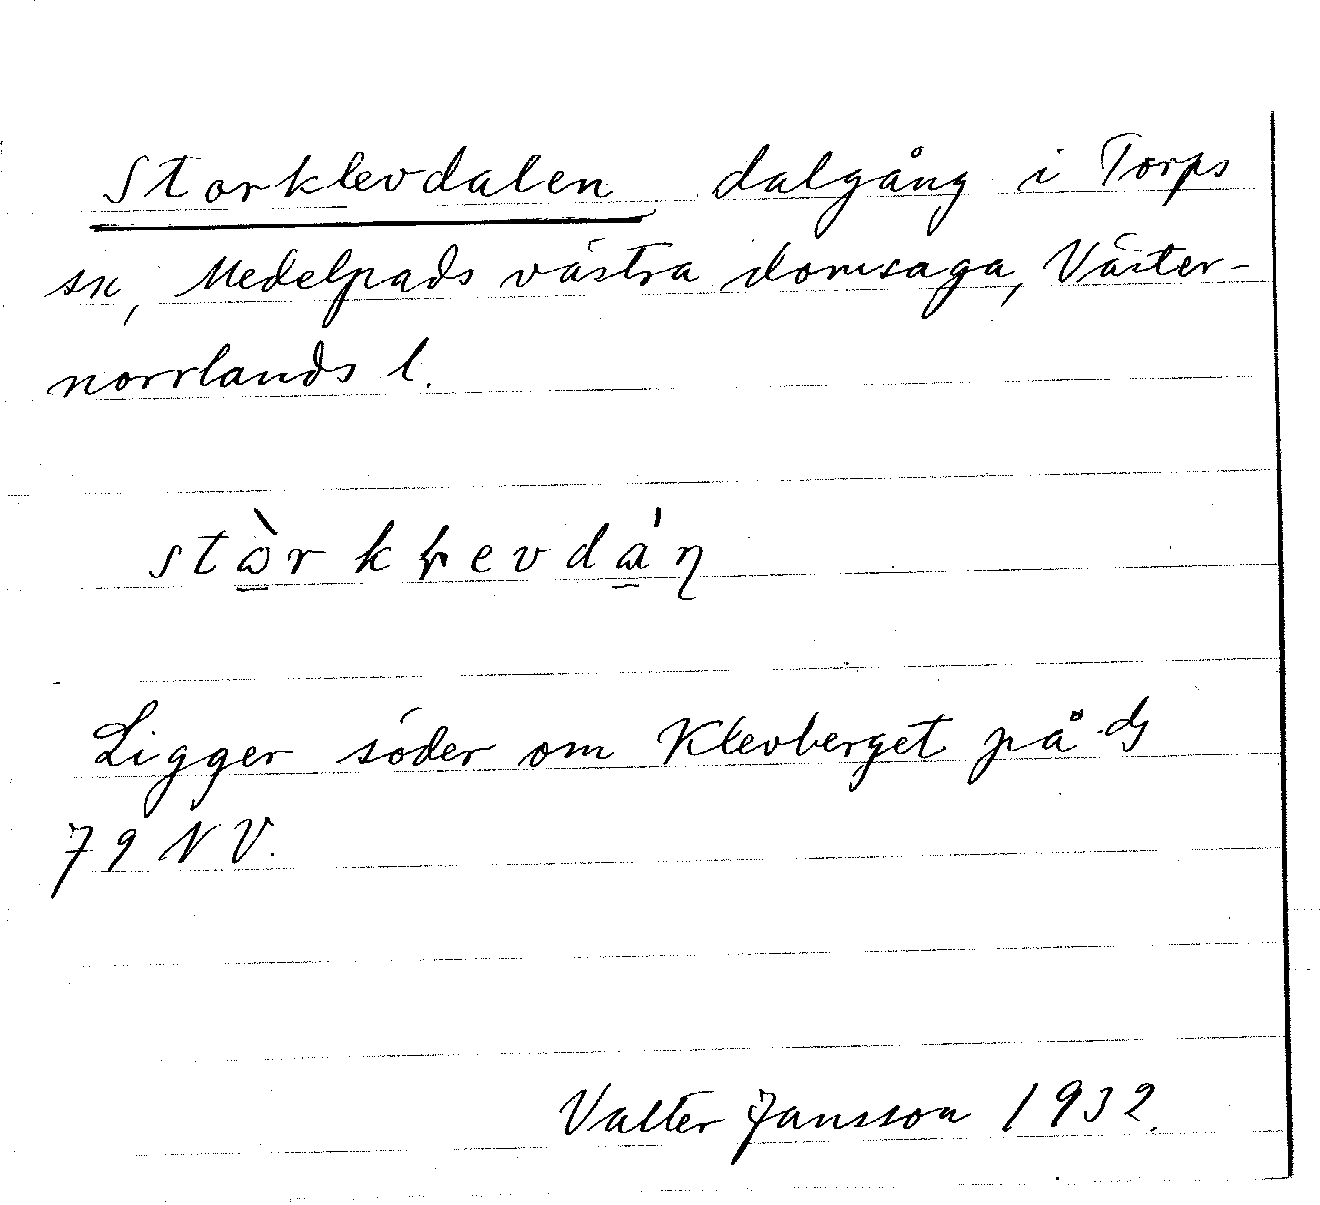 Storklevdalen dalgång i Torps
sn, Medelpads västra domsaga, Väster-
norrlands l.
Ligger söder om Klevberget på
79 NV.
Valter Jansson 1932.